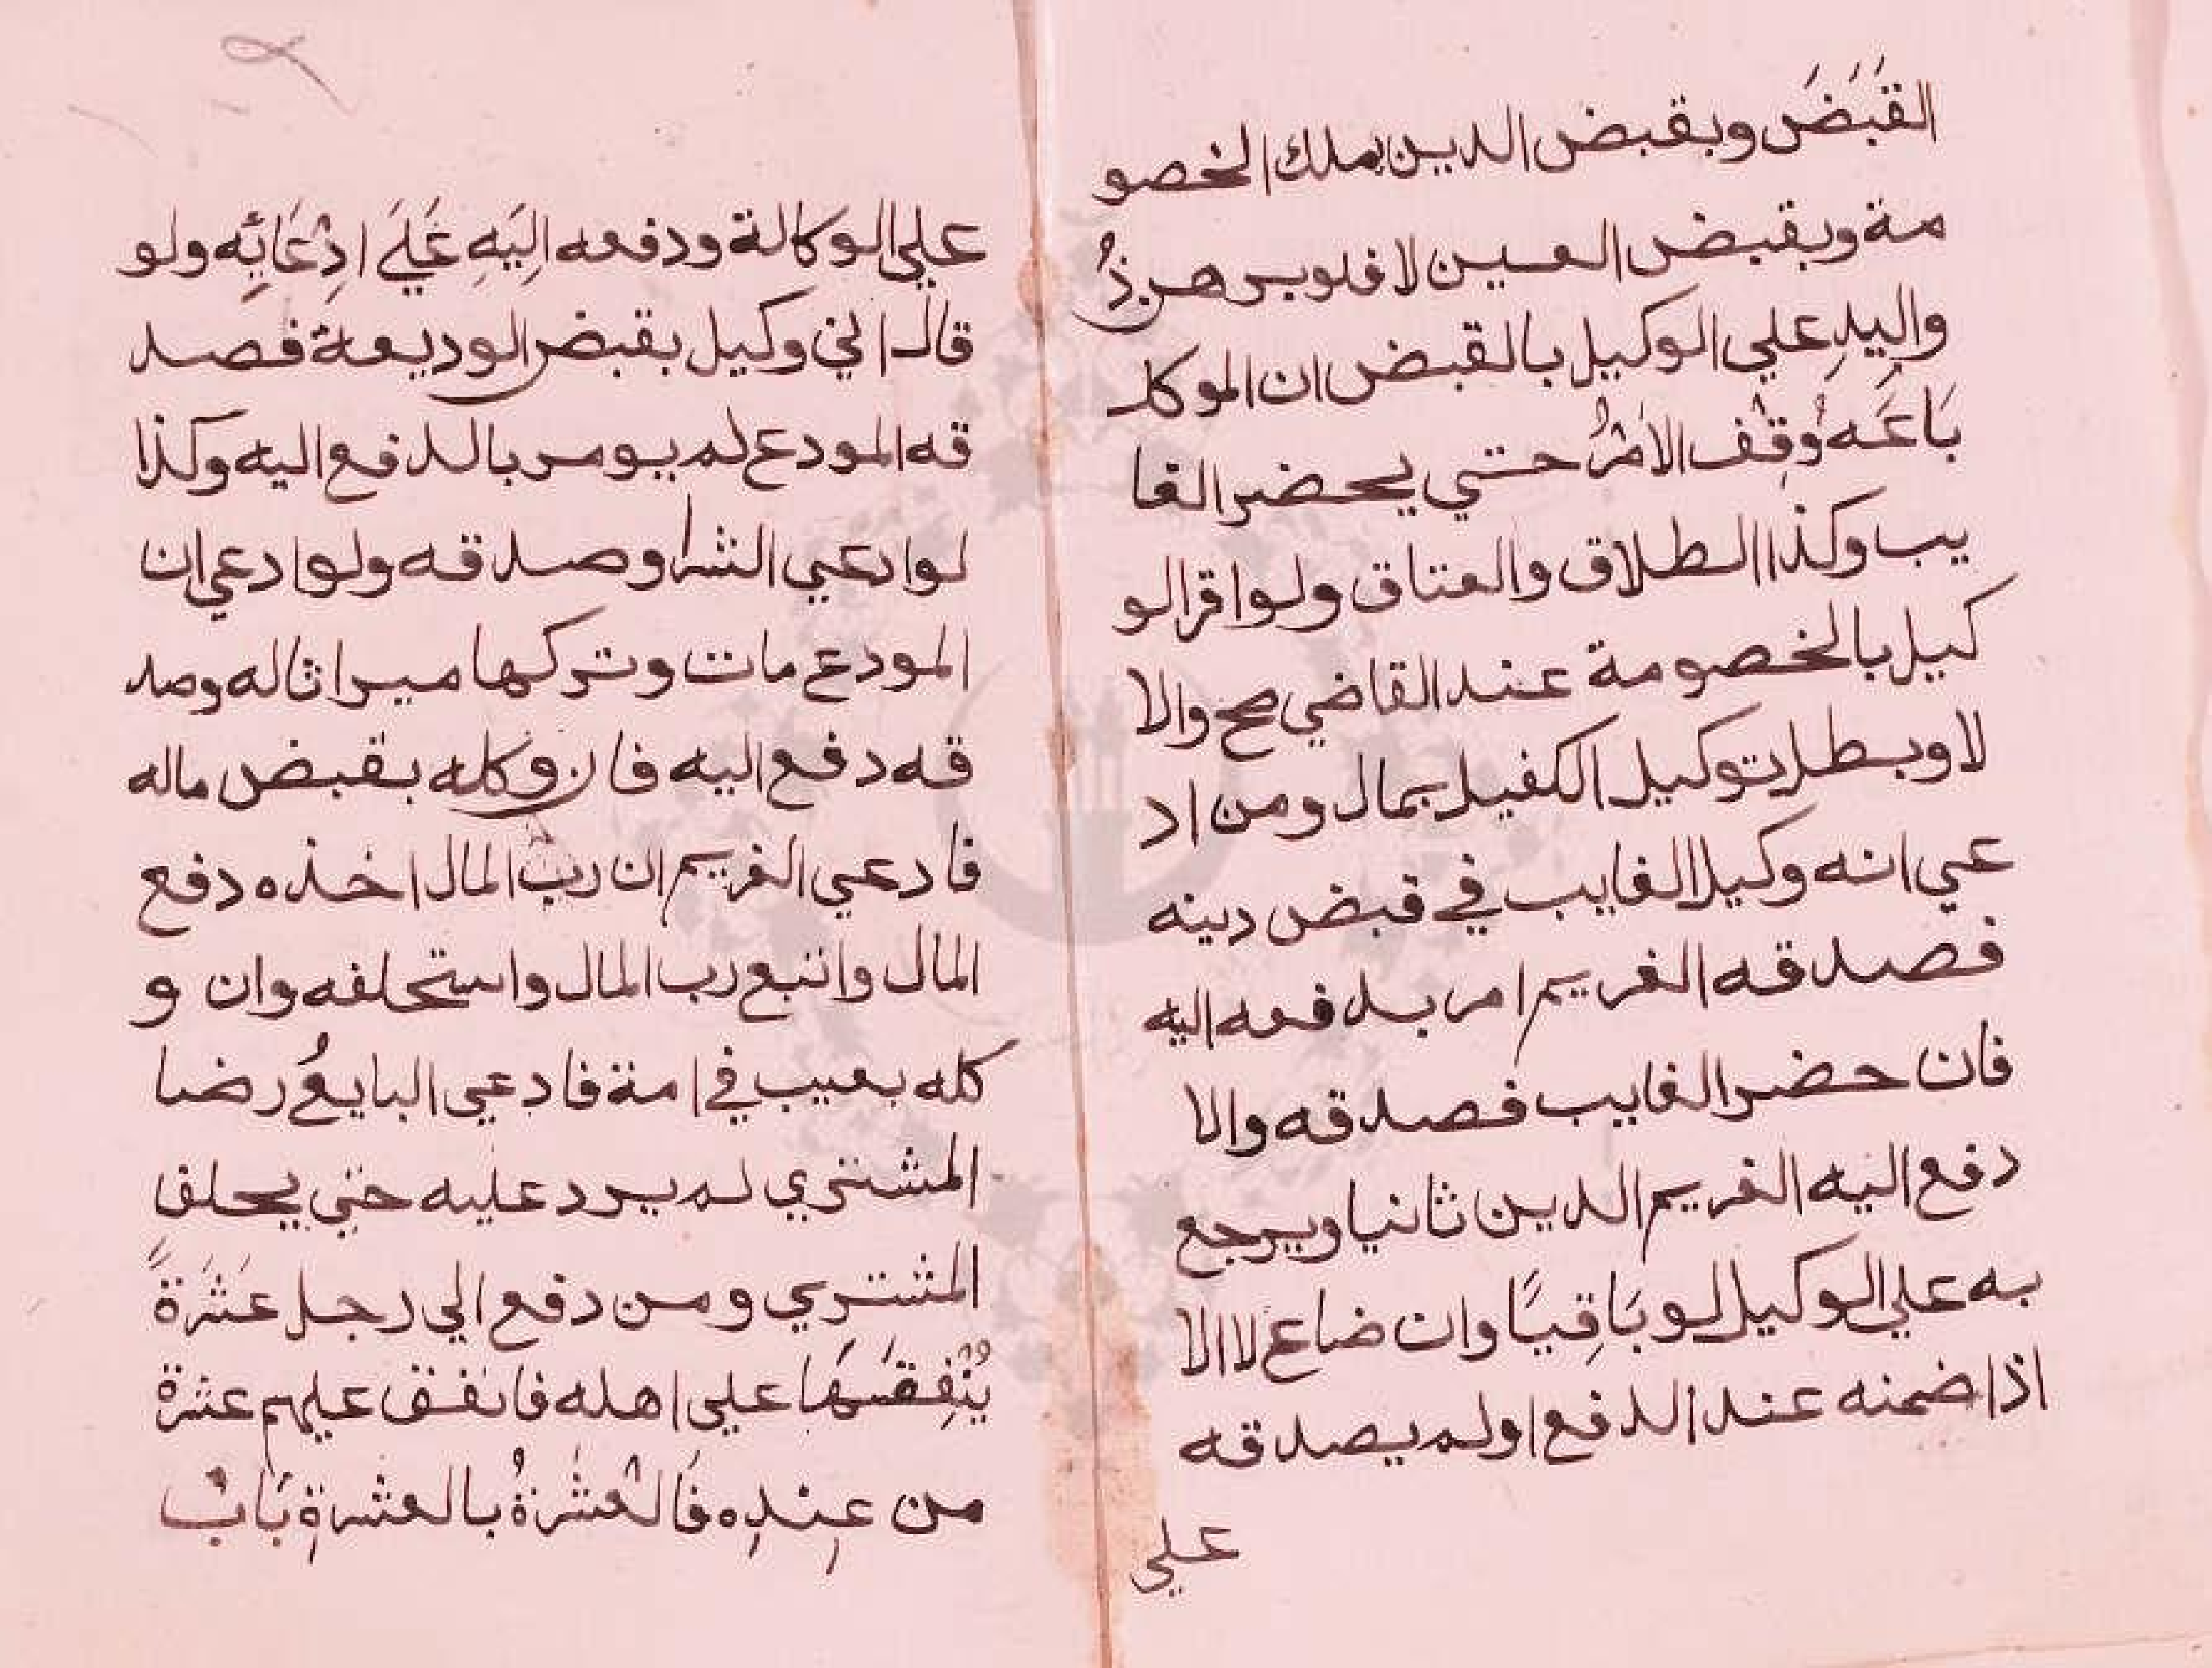 القَبَضَ وبقبض الدين يملك الخصو
مة وبقبض العين لا فلو برهن ذُ
واليدِ علي الوكيل بالقبض ان الموكل
بَاعَه وُقِف الأمْرُ حتي يحضر الغا
يب وكذا الطلاق والعتاق ولو اقر الو
كيل بالخصومة عند القاضي صح والا
لا وبطل توكيل الكفيل بمال ومن اد
عي انه وكيل الغايب في قبض دينه
فصدقه الغريم امر بدفعه اليه
فان حضر الغايب فصدقه والا
دفع اليه الغريم الدين ثانيا ويرجع
به علي الوكيل لو بَاقِيًا وان ضاع لا الا
اذا ضمنه عند الدفع او لم يصدقه
علي
علي الوكالة ودفعه اِليَهِ عَلَي ادِعَائِه ولو
قال اني وكيل بقبض الوديعة فصد
قه المودع لم يومر بالدفع اليه وكذا
لو ادعي الشرا وصدقه ولو ادعي ان
المودع مات وتركها ميراثا له وصد
قه دفع اليه فان وكله بقبض ماله
فادعي الغريم ان ربَّ المال اخذه دفع
المال واتبع رب المال واستحلفه وان و
كله بعيب في امة فادعي البايعُ رضا
المشتري لم يرد عليه حتي يحلف
المشتري ومن دفع الي رجل عَشَرَةً
يُنْفِقَهَا علي اهله فانفق عليهم عشرة
من عِنْدِه فَالعْشْرةُ بالعشرةِ بَابْ